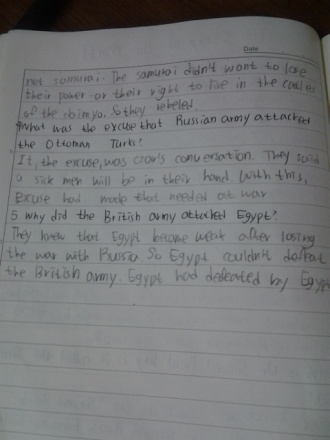 Date
not samurai. The samurai didn't want to lose
their power or their right to live in the castles
of the daimyo. So they rebeled.
What was the excuse that Russian army attacked
the Ottoman Turks?
It, the excuse, was czar's conversation. They said
a sick men will be in their hand. With this,
excuse had made that needed at war
5 why did the British army attacked Egypt?
They knew that Egypt become weak after losing
the war with Russia. So Egypt couldn't defeat
the British army. Egypt had defeated by Egyp